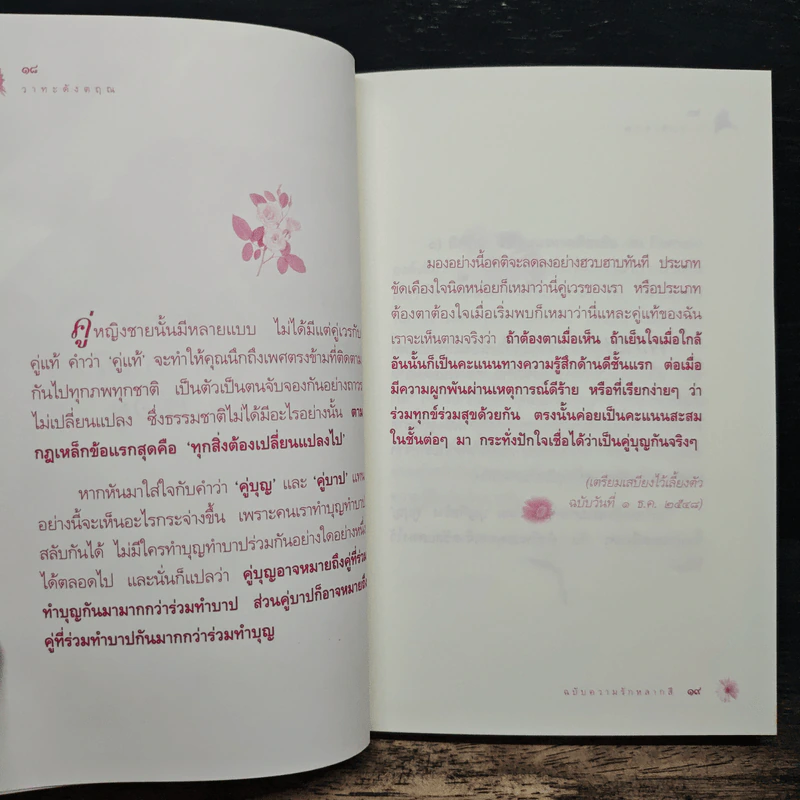 ๑๘
วาทะดังตฤณ
คู่หญิงชายนั้นมีหลายแบบ ไม่ได้มีแต่คู่เวรกับ
คู่แท้ คำว่า ‘คู่แท้’ จะทำให้คุณนึกถึงเพศตรงข้ามที่ติดตาม
กันไปทุกภพทุกชาติ เป็นตัวเป็นตนจับจองกันอย่างถาวร
ไม่เปลี่ยนแปลง ซึ่งธรรมชาติไม่ได้มีอะไรอย่างนั้น ตาม
กฎเหล็กข้อแรกสุดคือ ‘ทุกสิ่งต้องเปลี่ยนแปลงไป’
หากหันมาใส่ใจกับคำว่า ‘คู่บุญ’ และ ‘คู่บาป’ แทน
อย่างนี้จะเห็นอะไรกระจ่างขึ้น เพราะคนเราทำบุญทำบาป
สลับกันได้ ไม่มีใครทำบุญทำบาปร่วมกันอย่างใดอย่างหนึ่ง
ได้ตลอดไป และนั่นก็แปลว่า คู่บุญอาจหมายถึงคู่ที่ร่วม
ทำบุญกันมามากกว่าร่วมทำบาป ส่วนคู่บาปก็อาจหมายถึง
คู่ที่ร่วมทำบาปกันมากกว่าร่วมทำบุญ
มองอย่างนี้อคติจะลดลงอย่างฮวบฮาบทันที ประเภท
ขัดเคืองใจนิดหน่อยก็เหมาว่านี่คู่เวรของเรา หรือประเภท
ต้องตาต้องใจเมื่อเริ่มพบก็เหมาว่านี่แหละคู่แท้ของฉัน
เราจะเห็นตามจริงว่า ถ้าต้องตาเมื่อเห็น ถ้าเย็นใจเมื่อใกล้
อันนั้นก็เป็นคะแนนทางความรู้สึกด้านดีชั้นแรก ต่อเมื่อ
มีความผูกพันผ่านเหตุการณ์ดีร้าย หรือที่เรียกง่ายๆ ว่า
ร่วมทุกข์ร่วมสุขด้วยกัน ตรงนั้นค่อยเป็นคะแนนสะสม
ในชั้นต่อๆ มา กระทั่งปักใจเชื่อได้ว่าเป็นคู่บุญกันจริงๆ
(เตรียมเสบียงไว้เลี้ยงตัว
ฉบับวันที่ ๑ ธ.ค. ๒๕๔๘)
ฉบับความรักหลากสี ๑๙